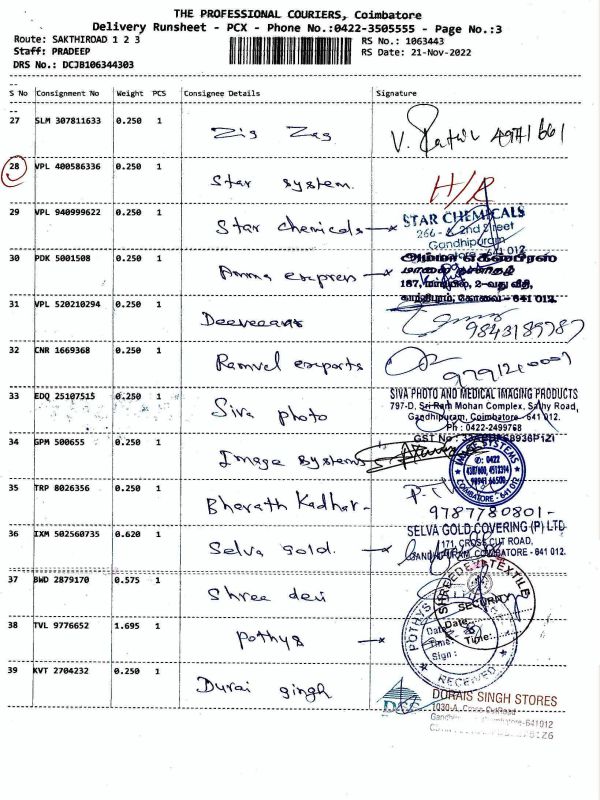 THE PROFESSIONAL COURIERS, Coimbatore
Delivery Runsheet - PCX - Phone No.:0422-3505555 - Page No.:3
Route: SAKTHIROAD 1 2 3
RS No.: 1063443
Staff: PRADEEP
RS Date: 21-Nov-2022
DRS No.: DCJB106344303
S No Consignment No Weight PCS Consignee Details Signature
27 SLM 307811633 0.250 1 Zig Zag V.
28 VPL 400586336 0.250 1 Star system. H/R
29 VPL 940999622 0.250 1 Star chemicals
STAR CHEMICALS
266 - 2nd Street
Gandhipuram
641 012
30 PDK 5001508 0.250 1 Amma express
அம்மா எக்ஸ்பிரஸ்
187, 2-வது வீதி,
காந்திபுரம், கோவை - 641 012.
31 VPL 520210294 0.250 1 Deeveeans
32 CNR 1669368 0.250 1 Ramvel exports
33 EDQ 25107515 0.250 1 Siva photo
SIVA PHOTO AND MEDICAL IMAGING PRODUCTS
797-D, Sri Ram Mohan Complex, Sathy Road,
Gandhipuram, Coimbatore - 641 012.
Ph : 0422-2499768
GST No :
34 GPM 500655 0.250 1 Image systems
IMAGE SYSTEMS
✆: 0422
COIMBATORE - 641 012
35 TRP 8026356 0.250 1 Bharath Kadhar-
9787780801-
36 IXM 502560735 0.620 1 Selva gold.
SELVA GOLD COVERING (P) LTD
171, CROSS CUT ROAD,
GANDHIPURAM, COIMBATORE - 641 012.
37 BWD 2879170 0.575 1 Shree devi
SHREEDEVI TEXTILE
SECURITY
Date:
Time:
38 TVL 9776652 1.695 1 Pothys
POTHYS
Date
Time:
Sign:
RECEIVED
39 KVT 2704232 0.250 1 Durai singh
DSS
DORAIS SINGH STORES
1030-A, Cross Cut Road
Coimbatore-641012